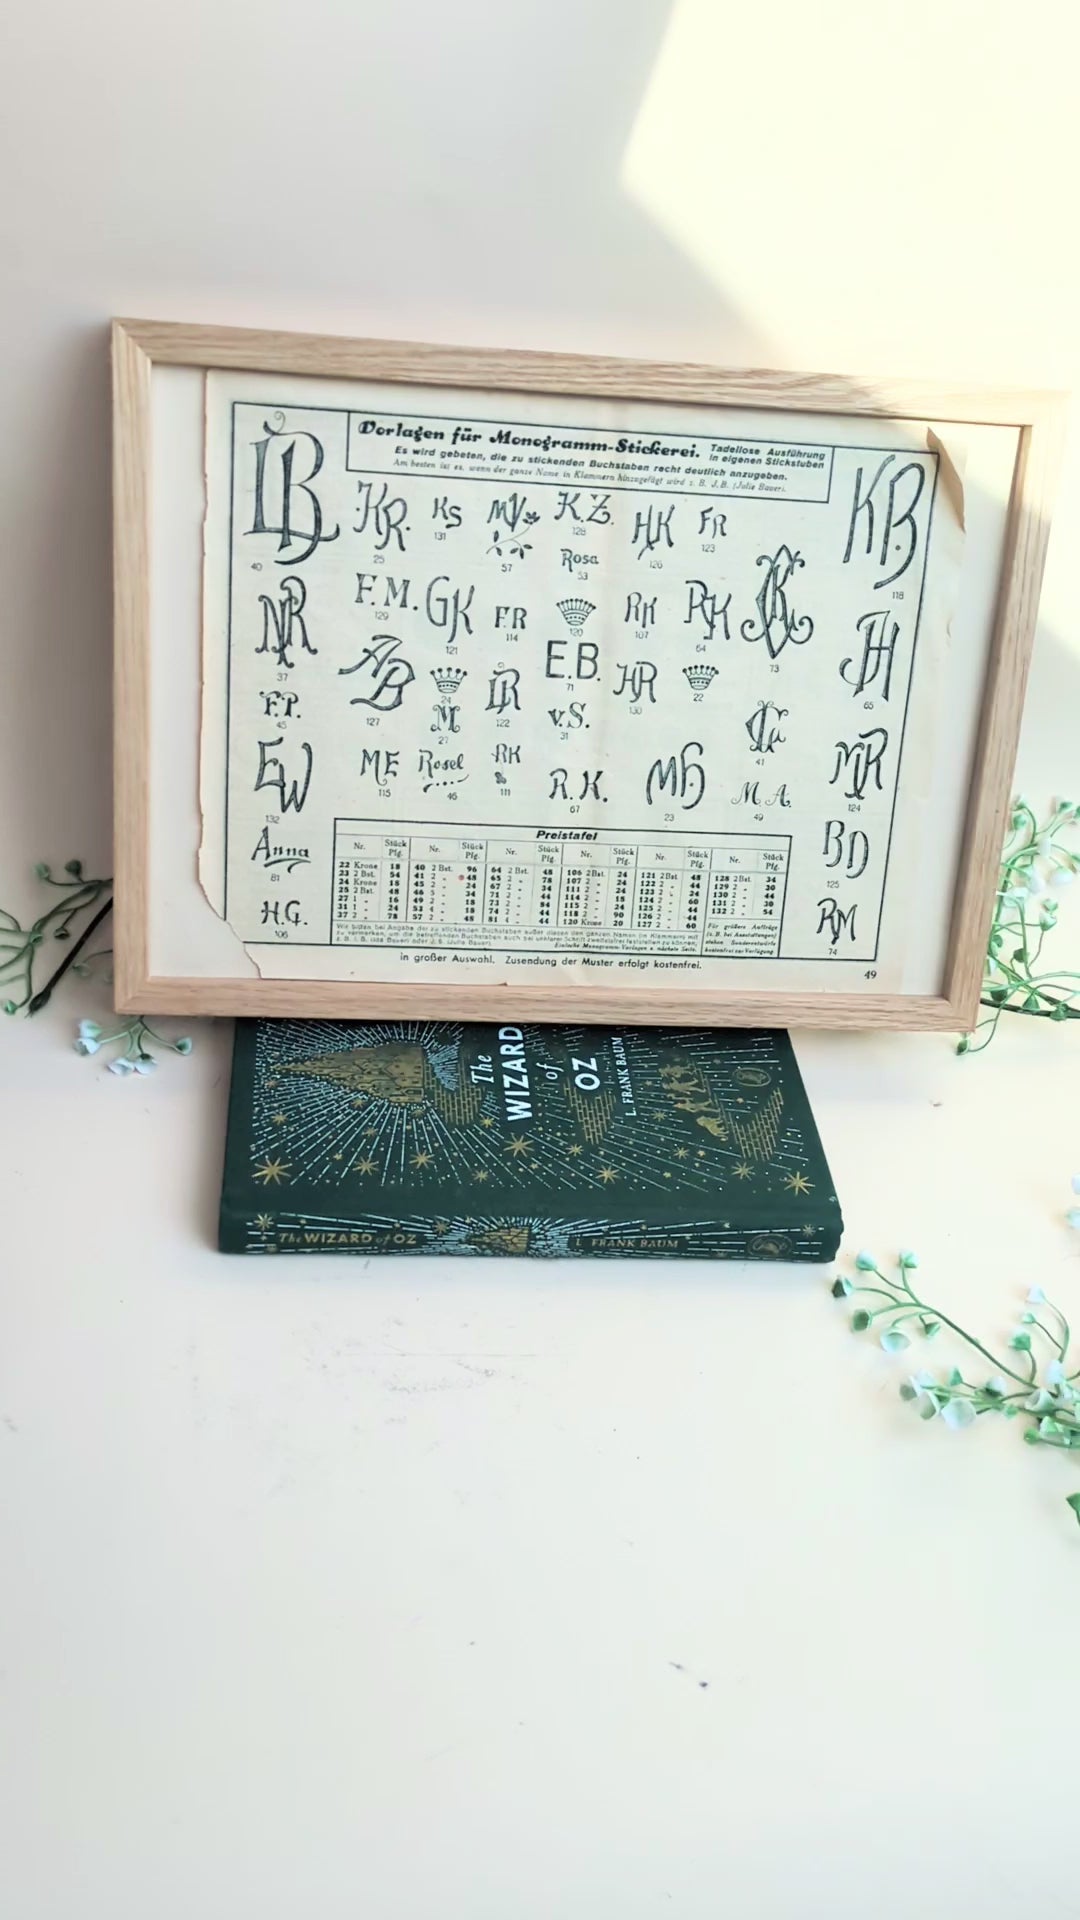 Vorlagen für Monogramm-Stickerei.
Tadellose Ausführung
in eigenen Stickstuben
Es wird gebeten, die zu stickenden Buchstaben recht deutlich anzugeben.
Am besten ist es, wenn der ganze Name in Klammern hinzugefügt wird z. B. J.B. (Julie Bauer).
LB
40
KR.
25
KS
131
MV
57
K.Z.
128
HK
126
FR
123
KB
118
Rosa
53
NR
37
F.M.
129
GK
121
F.R
114
120
RK
107
RK
64
73
JH
65
AB
127
24
LR
122
E.B.
71
HR
130
22
F.P.
45
M
27
v.S.
31
41
EW
132
ME
115
Rosel
46
RK
111
R.K.
67
MH
23
M.A.
49
MR
124
Anna
81
BD
125
H.G.
106
RM
74
Preistafel
Nr. Stück Pfg. Nr. Stück Pfg. Nr. Stück Pfg. Nr. Stück Pfg. Nr. Stück Pfg. Nr. Stück Pfg.
22 Krone 18 40 2 Bst. 96 64 2 Bst. 48 106 2 Bst. 24 121 2 Bst. 48 128 2 Bst. 34
23 2 Bst. 54 41 2 „ 48 65 2 „ 78 107 2 „ 24 122 2 „ 44 129 2 „ 30
24 Krone 18 45 2 „ 24 67 2 „ 34 111 2 „ 24 123 2 „ 24 130 2 „ 44
25 2 Bst. 48 46 5 „ 34 71 2 „ 44 114 2 „ 18 124 2 „ 60 131 2 „ 30
27 1 „ 16 49 2 „ 18 73 2 „ 84 115 2 „ 24 125 2 „ 44 132 2 „ 54
31 1 „ 24 53 4 „ 18 74 2 „ 44 118 2 „ 90 126 2 „ 44
37 2 „ 78 57 2 „ 48 81 4 „ 44 120 Krone 20 127 2 „ 60
Für größere Aufträge
(z. B. bei Ausstattungen)
stehen Sonderentwürfe
kostenfrei zur Verfügung
Wir bitten, bei Angabe der zu stickenden Buchstaben außer diesen den ganzen Namen (in Klammern) mit
zu vermerken, um die betreffenden Buchstaben auch bei unklarer Schrift zweifelsfrei feststellen zu können,
z. B. I. B. (Ida Bauer) oder J. B. (Julie Bauer).
Einfache Monogramm-Vorlagen s. nächste Seite.
in großer Auswahl. Zusendung der Muster erfolgt kostenfrei.
49
The
WIZARD
of
OZ
L. FRANK BAUM
The WIZARD of OZ L. FRANK BAUM